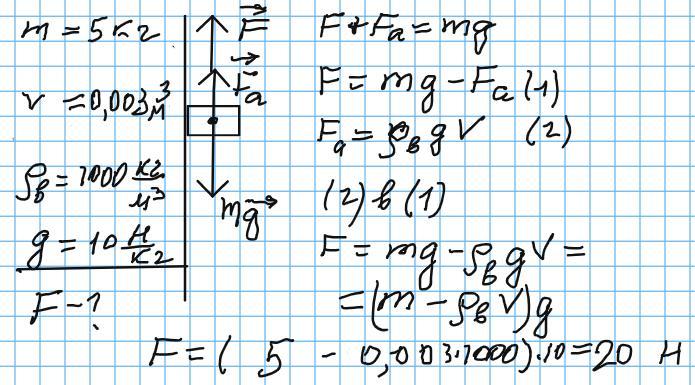 m = 5 кг
v = 0,003 м³
ρв = 1000 кг/м³
g = 10 Н/кг
F - ?
F
Fa
mg
F + Fa = mg
F = mg - Fa (1)
Fa = ρв g V (2)
(2) в (1)
F = mg - ρв g V =
= (m - ρв V) g
F = ( 5 - 0,003·1000)·10 = 20 Н